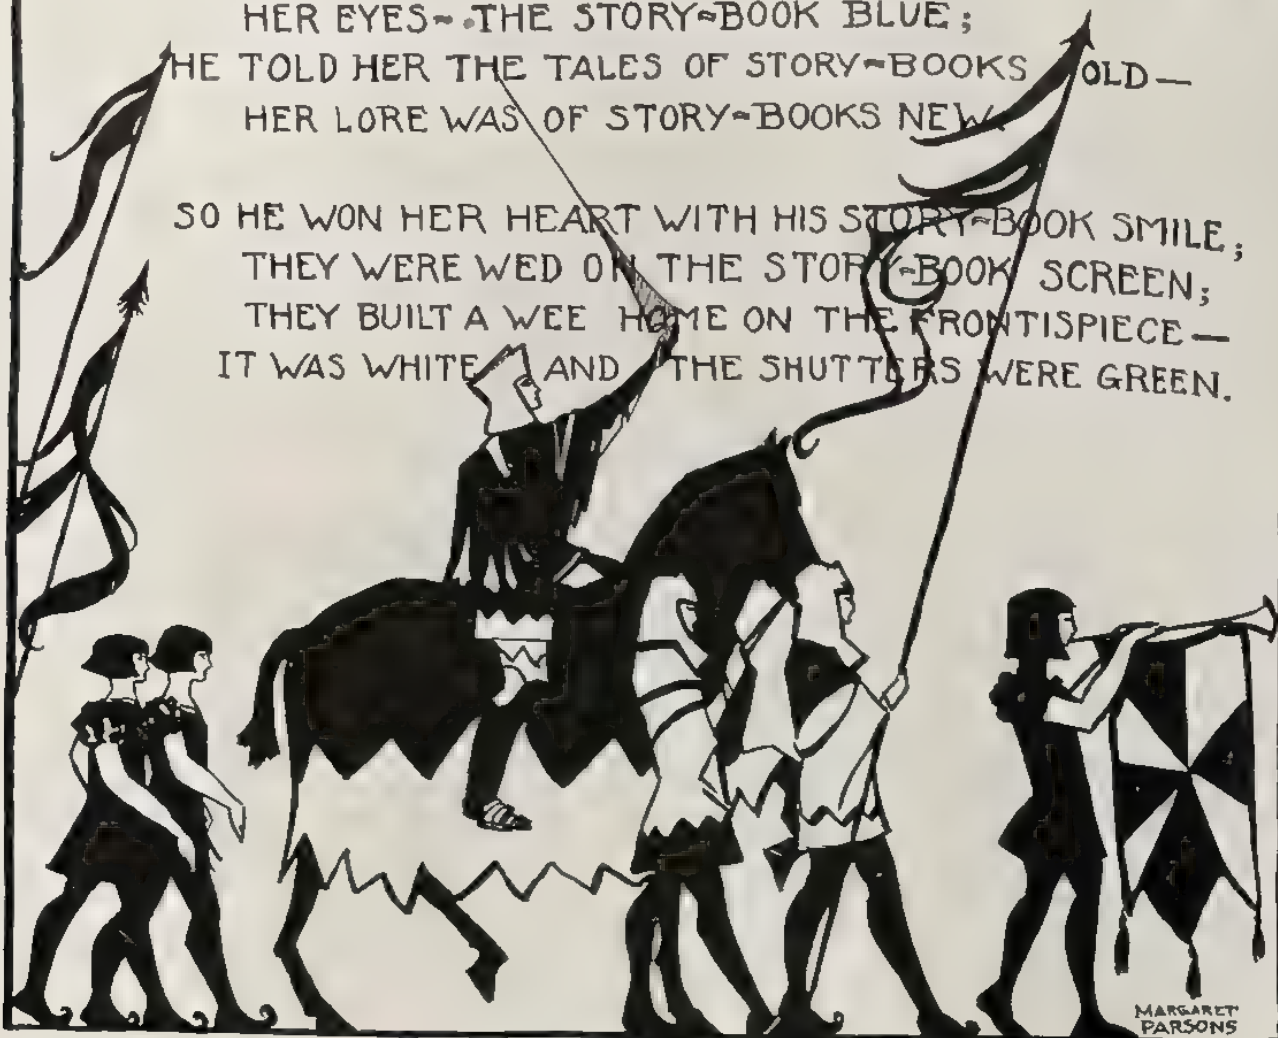 HER EYES~ THE STORY~BOOK BLUE;
HE TOLD HER THE TALES OF STORY~BOOKS OLD—
HER LORE WAS OF STORY~BOOKS NEW.
SO HE WON HER HEART WITH HIS STORY~BOOK SMILE;
THEY WERE WED ON THE STORY~BOOK SCREEN;
THEY BUILT A WEE HOME ON THE FRONTISPIECE—
IT WAS WHITE AND THE SHUTTERS WERE GREEN.
MARGARET
PARSONS